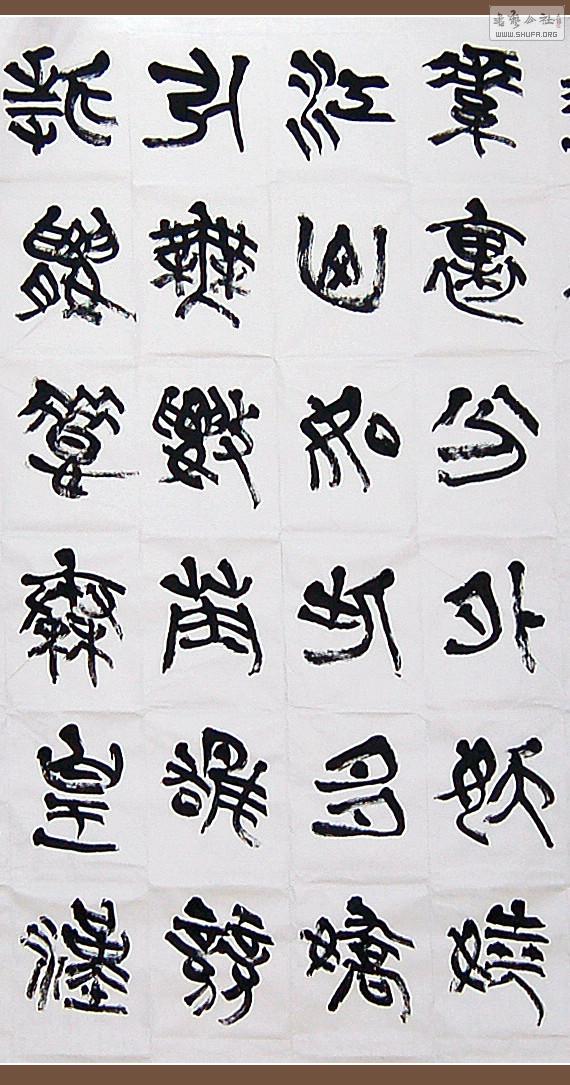 素裹分外妖嬈
江山如此多嬌
引無數英雄競
折腰惜秦皇漢
書藝公社
WWW.SHUFA.ORG